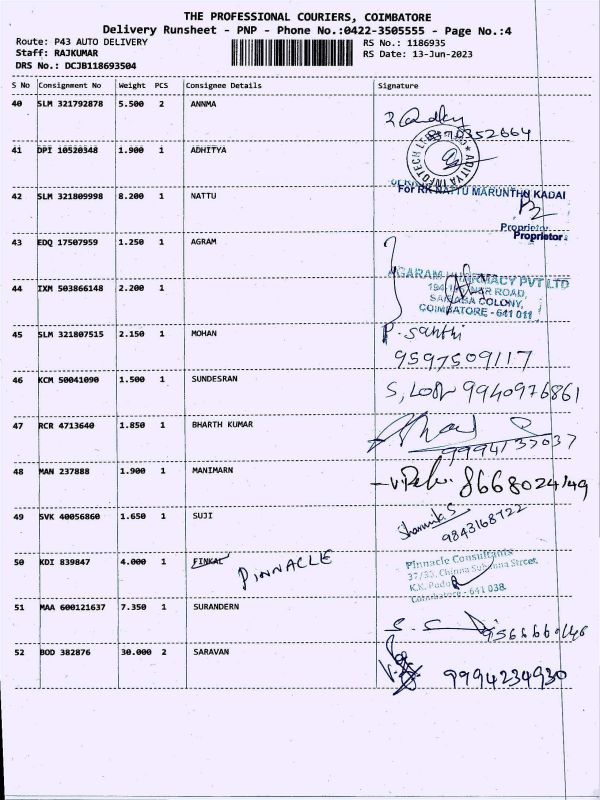 THE PROFESSIONAL COURIERS, COIMBATORE
Delivery Runsheet - PNP - Phone No.:0422-3505555 - Page No.:4
Route: P43 AUTO DELIVERY RS No.: 1186935
Staff: RAJKUMAR RS Date: 13-Jun-2023
DRS No.: DCJB118693504
S No Consignment No Weight PCS Consignee Details Signature
40 SLM 321792878 5.500 2 ANNMA
41 DPI 10520348 1.900 1 ADHITYA
ADITYA INFOTECH
42 SLM 321809998 8.200 1 NATTU
For RK NATTU MARUNTHU KADAI
Proprietor
Proprietor
43 EDQ 17507959 1.250 1 AGRAM
44 IXM 503866148 2.200 1
AGARAM PHARMACY PVT LTD
COLONY,
COIMBATORE - 641 011
45 SLM 321807515 2.150 1 MOHAN
P. Santhi
9597509117
46 KCM 50041090 1.500 1 SUNDESRAN
9940976861
47 RCR 4713640 1.850 1 BHARTH KUMAR
48 MAN 237888 1.900 1 MANIMARN
8668024149
49 SVK 40056860 1.650 1 SUJI
9843168722
50 KDI 839847 4.000 1 FINKAL PINNACLE
Pinnacle Consultants
Coimbatore - 641 038.
51 MAA 600121637 7.350 1 SURANDERN
52 BOD 382876 30.000 2 SARAVAN
9994234930